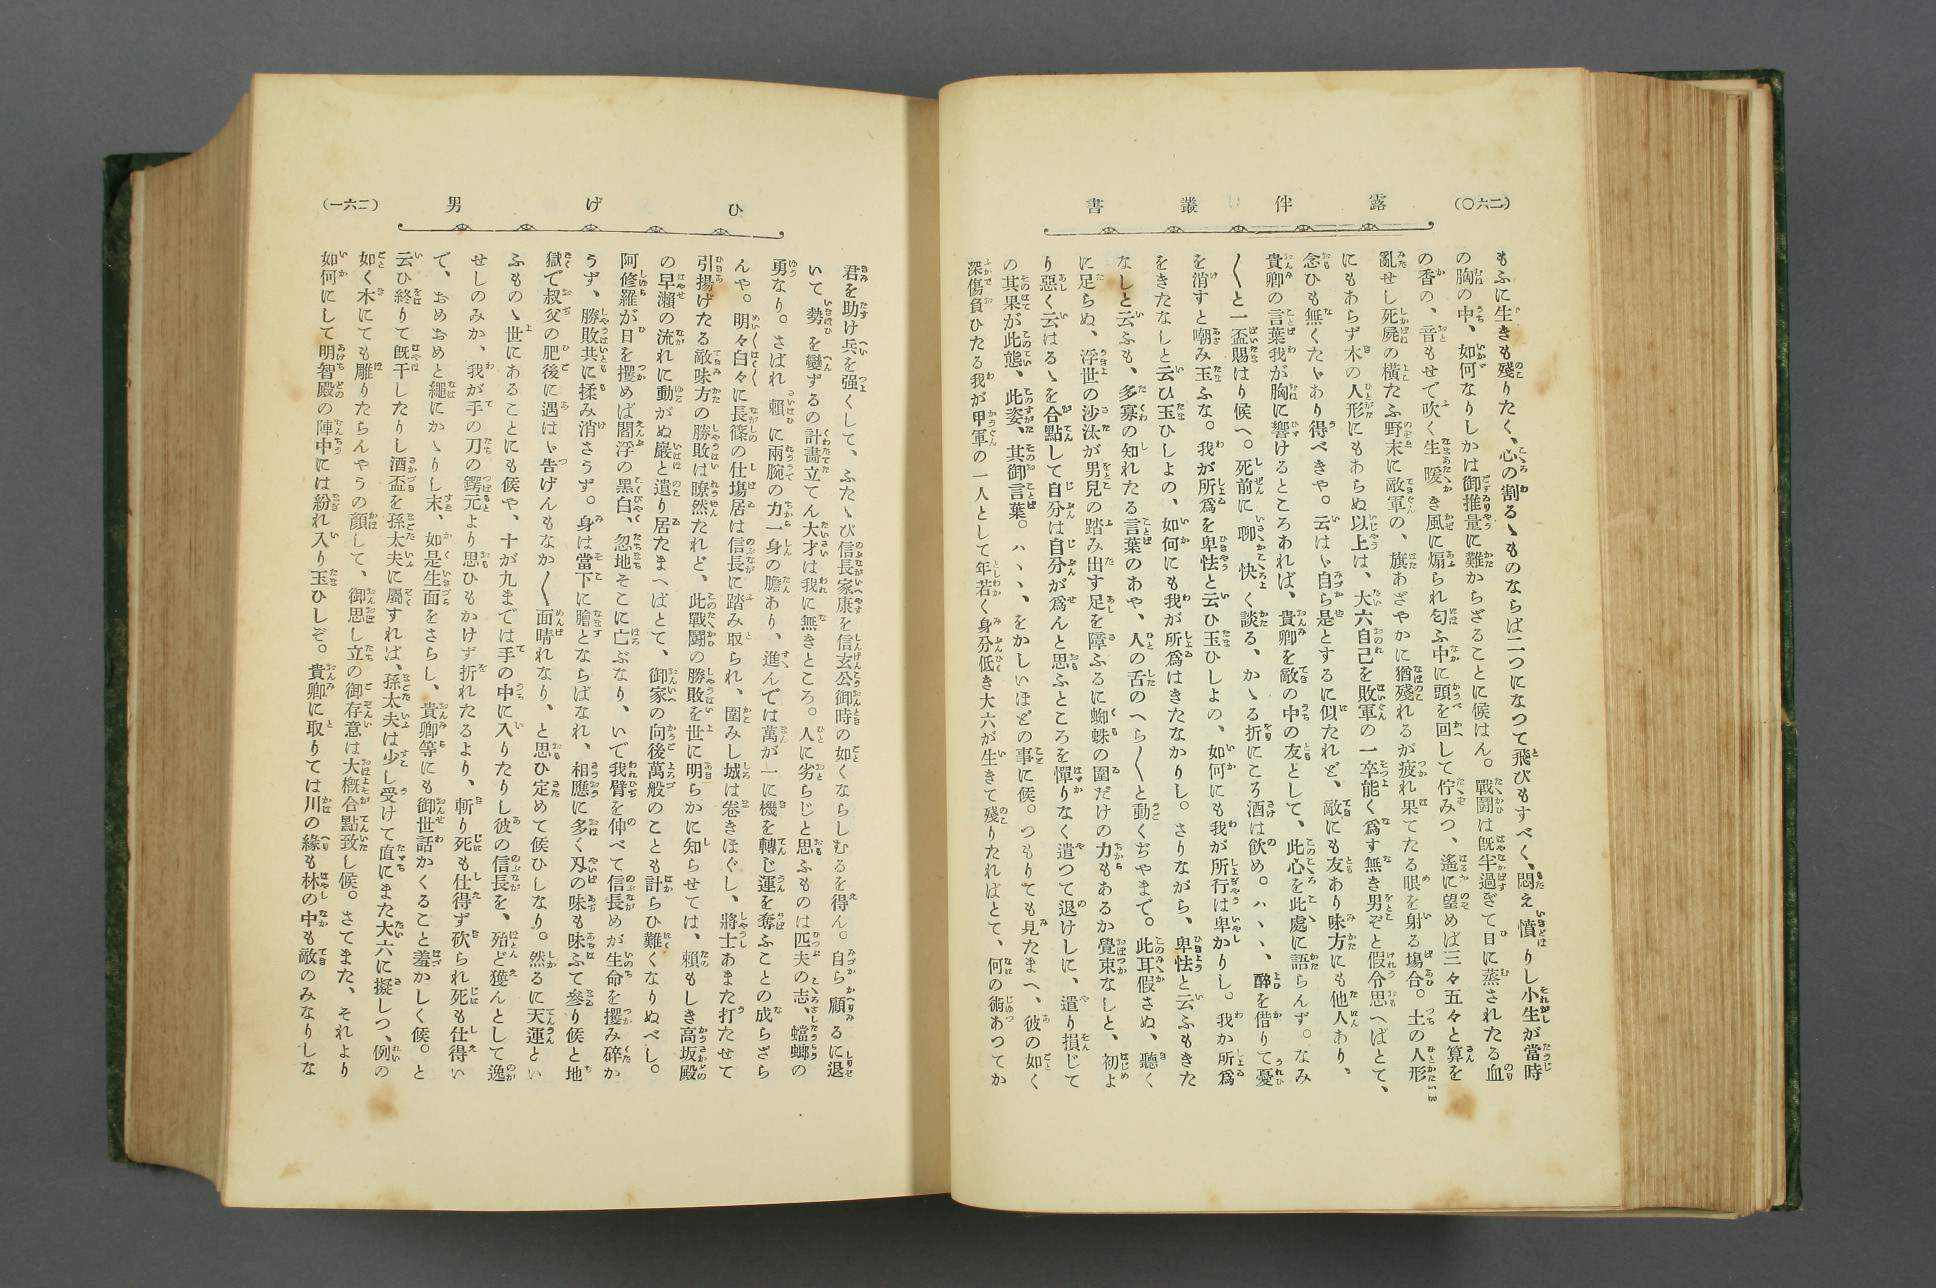 (二六〇)
露伴叢書
もふに生きも殘りたく、心の割るゝものならば二つになつて飛びもすべく、悶え憤りし小生が當時
の胸の中、如何なりしかは御推量に難からざることに候はん。戰鬪は既半過ぎて日に蒸されたる血
の香の、音もせで吹く生暖き風に煽られ匂ふ中に頭を回して佇みつ、遙に望めば三々五々と算を
亂せし死屍の橫たふ野末に敵軍の、旗あざやかに猶殘れるが疲れ果てたる眼を射る塲合。土の人形
にもあらず木の人形にもあらぬ以上は、大六自己を敗軍の一卒能く爲す無き男ぞと假令思へばとて、
念ひも無くたゞあり得べきや。云はゞ自ら是とするに似たれど、敵にも友あり味方にも他人あり、
貴卿の言葉我が胸に響けるところあれば、貴卿を敵の中の友として、此心を此處に語らんず。なみ
〳〵と一盃賜はり候へ。死前に聊快く談る、かゝる折にころ酒は飮め。ハヽヽ、醉を借りて憂
を消すと嘲み玉ふな。我が所爲を卑怯と云ひ玉ひしよの、如何にも我が所行は卑かりし。我か所爲
をきたなしと云ひ玉ひしよの、如何にも我が所爲はきたなかりし。さりながら、卑怯と云ふもきた
なしと云ふも、多寡の知れたる言葉のあや、人の舌のへら〳〵と動くぢやまで。此耳假さぬ、聽く
に足らぬ、浮世の沙汰が男兒の踏み出す足を障ふるに蜘蛛の圍だけの力もあるか覺束なしと、初よ
り惡く云はるゝを合點して自分は自分が爲んと思ふところを憚りなく遣つて退けしに、遣り損じて
の其果が此態、此姿、其御言葉。ハヽヽ、をかしいほどの事に候。つもりても見たまへ、彼の如く
深傷負ひたる我が甲軍の一人として年若く身分低き大六が生きて殘りたればとて、何の術あつてか
ひげ男
(二六一)
君を助け兵を强くして、ふたゝび信長家康を信玄公御時の如くならしむるを得ん。自ら顧るに退
いて勢を變ずるの計畫立てん大才は我に無きところ。人に劣らじと思ふものは匹夫の志、蟷螂の
勇なり。さばれ賴に兩腕の力一身の膽あり、進んでは萬が一に機を轉じ運を奪ふことの成らざら
んや。明々白々に長篠の仕塲居は信長に踏み取られ、圍みし城は卷きほぐし、將士あまた打たせて
引揚げたる敵味方の勝敗は瞭然たれど、此戰鬪の勝敗を世に明らかに知らせては、賴もしき高坂殿
の早瀨の流れに動がぬ巖と遺り居たまへばとて、御家の向後萬般のことも計らひ難くなりぬべし。
阿修羅が日を攫めば閻浮の黑白、忽地そこに亡ぶなり、いで我臂を伸べて信長めが生命を攫み碎か
うず、勝敗共に揉み消さうず。身は當下に膾とならばなれ、相應に多く刃の味も味ふて參り候と地
獄で叔父の肥後に遇はゞ告げんもなか〳〵面晴れなり、と思ひ定めて候ひしなり。然るに天運とい
ふものゝ世にあることにも候や、十が九までは手の中に入りたりし彼の信長を、殆ど獲んとして逸
せしのみか、我が手の刀の鍔元より思ひもかけず折れたるより、斬り死も仕得ず砍られ死も仕得い
で、おめおめと繩にかゝりし末、如是生面をさらし、貴卿等にも御世話かくること羞かしく候。と
云ひ終りて旣干したりし酒盃を孫太夫に屬すれば、孫太夫は少し受けて直にまた大六に擬しつ、例の
如く木にても雕りたらんやうの顏して、御思し立の御存意は大槪合點致し候。さてまた、それより
如何にして明智殿の陣中には紛れ入り玉ひしぞ。貴卿に取りては川の緣も林の中も敵のみなりしな